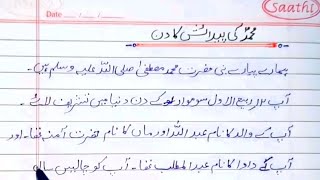 Saathi
Date
محمدؐ کی پیدائش کا دن
ہمارے پیارے نبی حضرت محمد مصطفیٰ صلی اللہ علیہ وسلم ہیں۔
آپ ۱۲ ربیع الاول سوموار کے دن دنیا میں تشریف لائے۔
آپ کے والد کا نام عبداللہ اور ماں کا نام حضرت آمنہ تھا۔ اور
آپ کے دادا کا نام عبدالمطلب تھا۔ آپ کو چالیس سال